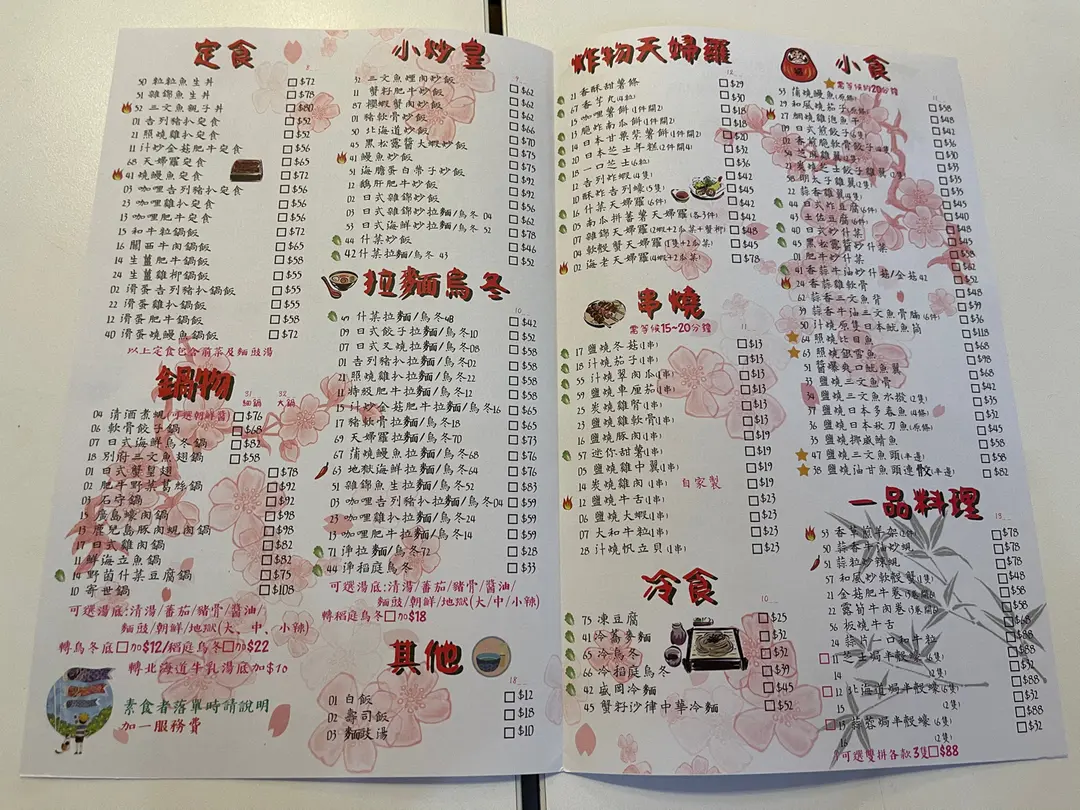 定食
50 粒粒魚生丼 $72
51 雜錦魚生丼 $78
52 三文魚親子丼 $80
01 吉列豬扒定食 $52
21 照燒雞扒定食 $52
11 汁炒金菇肥牛定食 $56
68 天婦羅定食 $65
41 燒鰻魚定食 $72
03 咖哩吉列豬扒定食 $56
23 咖哩雞扒定食 $56
13 咖哩肥牛定食 $56
15 和牛粒鍋飯 $65
16 關西牛肉鍋飯 $58
14 生薑肥牛鍋飯 $58
24 生薑雞柳鍋飯 $55
02 滑蛋吉列豬扒鍋飯 $55
22 滑蛋雞扒鍋飯 $55
12 滑蛋肥牛鍋飯 $58
40 滑蛋燒鰻魚鍋飯 $72
以上定食包含前菜及麵豉湯
鍋物
31 細鍋 32 大鍋
04 清酒煮蜆(可選朝鮮醬) $76
06 軟骨餃子鍋 $68
07 日式海鮮烏冬鍋 $82
18 別府三文魚翅鍋 $58
01 日式蟹皇翅 $78
02 肥牛野菜葛絲鍋 $92
03 石守鍋 $92
15 廣島蠔肉鍋 $98
13 鹿兒島豚肉蜆肉鍋 $98
17 日式雞肉鍋 $82
11 鮮海立魚鍋 $82
14 野菌什菜豆腐鍋 $75
10 寄世鍋 $108
可選湯底:清湯/蕃茄/豬骨/醬油/
麵豉/朝鮮/地獄(大、中、小辣)
轉烏冬底加$12/稻庭烏冬加$22
轉北海道牛乳湯底加$10
素食者落單時請說明
加一服務費
小炒皇
9
31 三文魚裡肉炒飯 $62
11 蟹籽肥牛炒飯 $62
87 櫻蝦蟹肉炒飯 $62
01 豬軟骨炒飯 $66
50 北海道炒飯 $70
45 黑松露醬大蝦炒飯 $75
41 鰻魚炒飯 $75
51 海膽蛋白帶子炒飯 $75
12 鵝肝肥牛炒飯 $62
02 日式雞炒飯 $52
03 日式雜錦炒拉麵/烏冬 04 $62
53 日式海鮮炒拉麵/烏冬 52 $78
44 什菜炒飯 $46
42 什菜拉麵/烏冬 43 $52
拉麵烏冬
10
什菜拉麵/烏冬48 $42
09 日式餃子拉麵/烏冬10 $52
07 日式叉燒拉麵/烏冬08 $58
01 吉列豬扒拉麵/烏冬02 $58
21 照燒雞扒拉麵/烏冬22 $58
11 特級肥牛拉麵/烏冬12 $58
15 汁炒金菇肥牛拉麵/烏冬16 $65
17 豬軟骨拉麵/烏冬18 $65
69 天婦羅拉麵/烏冬70 $73
67 蒲燒鰻魚拉麵/烏冬68 $76
63 地獄海鮮拉麵/烏冬64 $76
51 雜錦魚生拉麵/烏冬52 $83
03 咖哩吉列豬扒拉麵/烏冬04 $59
23 咖哩雞扒拉麵/烏冬24 $59
13 咖哩肥牛拉麵/烏冬14 $59
71 淨拉麵/烏冬72 $28
44 淨稻庭烏冬 $33
可選湯底:清湯/蕃茄/豬骨/醬油/
麵豉/朝鮮/地獄(大/中/小辣)
轉稻庭烏冬加$18
其他
18
01 白飯 $12
02 壽司飯 $18
03 麵豉湯 $10
炸物天婦羅
12
21 香酥甜薯條 $29
67 香芋丸(4粒) $30
19 咖哩薯餅(1件開2) $18
15 脆炸南瓜餅(1件開2) $18
14 日本甘栗紫薯餅(1件開2) $20
20 日本芝士年糕(2件開4) $32
18 一口芝士(6粒) $32
12 吉列炸蝦(4隻) $42
10 酥炸吉列蠔(5隻) $45
16 什菜天婦羅(6件) $42
05 南瓜拼蕃薯天婦羅(各3件) $42
07 雜錦天婦羅(2蝦+2瓜菜+蟹柳) $48
04 軟殼蟹天婦羅(1隻+2瓜菜) $45
02 海老天婦羅(4蝦+2瓜菜) $78
串燒
需等候15~20分鐘
11
17 鹽燒冬菇(1串) $13
18 汁燒茄子(1串) $13
55 汁燒翠肉瓜(1串) $13
59 鹽燒車厘茄(1串) $13
25 炭燒雞腎(1串) $13
23 鹽燒雞軟骨(1串) $13
16 鹽燒豚肉(1串) $19
57 迷你甜薯(1串) $19
05 鹽燒雞中翼(1串) $19
14 炭燒雞肉(1串) 自家製 $19
12 鹽燒牛舌(1串) $23
06 鹽燒大蝦(1串) $23
07 大和牛粒(1串) $23
28 汁燒帆立貝(1串) $23
冷食
10
75 凍豆腐 $25
41 冷蕎麥麵 $32
65 冷烏冬 $32
66 冷稻庭烏冬 $39
42 盛岡冷麵 $52
45 蟹籽沙律中華冷麵 $45
小食
需等候約20分鐘
11
53 蒲燒鰻魚(原條) $58
29 和風燒茄子(原條) $48
27 網燒雞泡魚干 $48
09 日式煎餃子(4隻) $42
02 香煎脆軟骨餃子(4隻) $36
54 芝麻雞翼(4隻) $30
23 炭燒芝士餃子雞翼(2隻) $33
58 明太子雞翼(2隻) $35
22 蒜香雞翼(4隻) $35
44 日式炸豆腐(6件)
43 土佐豆腐(6件)
40 日式炒什菜
45 黑松露醬炒什菜
01 肥牛炒什菜
41 香蒜牛油炒什菇/金菇42
24 香蒜雞軟骨
62 蒜香三文魚背
39 蒜香牛油三文魚骨腩(6件)
50 汁燒原隻日本魷魚筒
64 照燒比目魚
63 照燒銀雪魚
51 醬爆爽口魷魚翼
33 鹽燒三文魚骨
34 鹽燒三文魚水掞(2隻)
37 鹽燒日本多春魚(4條)
36 鹽燒日本秋刀魚(原條)
35 鹽燒挪威鯖魚
47 鹽燒三文魚頭(半邊) $58
38 鹽燒油甘魚頭連骹(半邊) $82
一品料理
13
53 香草煎羊架(2件) $78
50 蒜香牛油炒蜆 $78
51 蒜粒炒辣蜆 $78
57 和風炒軟殼蟹(1隻)
21 金菇肥牛卷(3卷開6)
22 露筍牛肉卷(3卷開6)
56 板燒牛舌
24 蒜片一口和牛粒
11 芝士焗半殼蠔(6隻)
14 (2隻)
12 北海道焗半殼蠔(6隻)
15 (2隻)
13 蒜蓉焗半殼蠔(6隻) $88
16 (2隻) $32
可選雙拼各款3隻$88